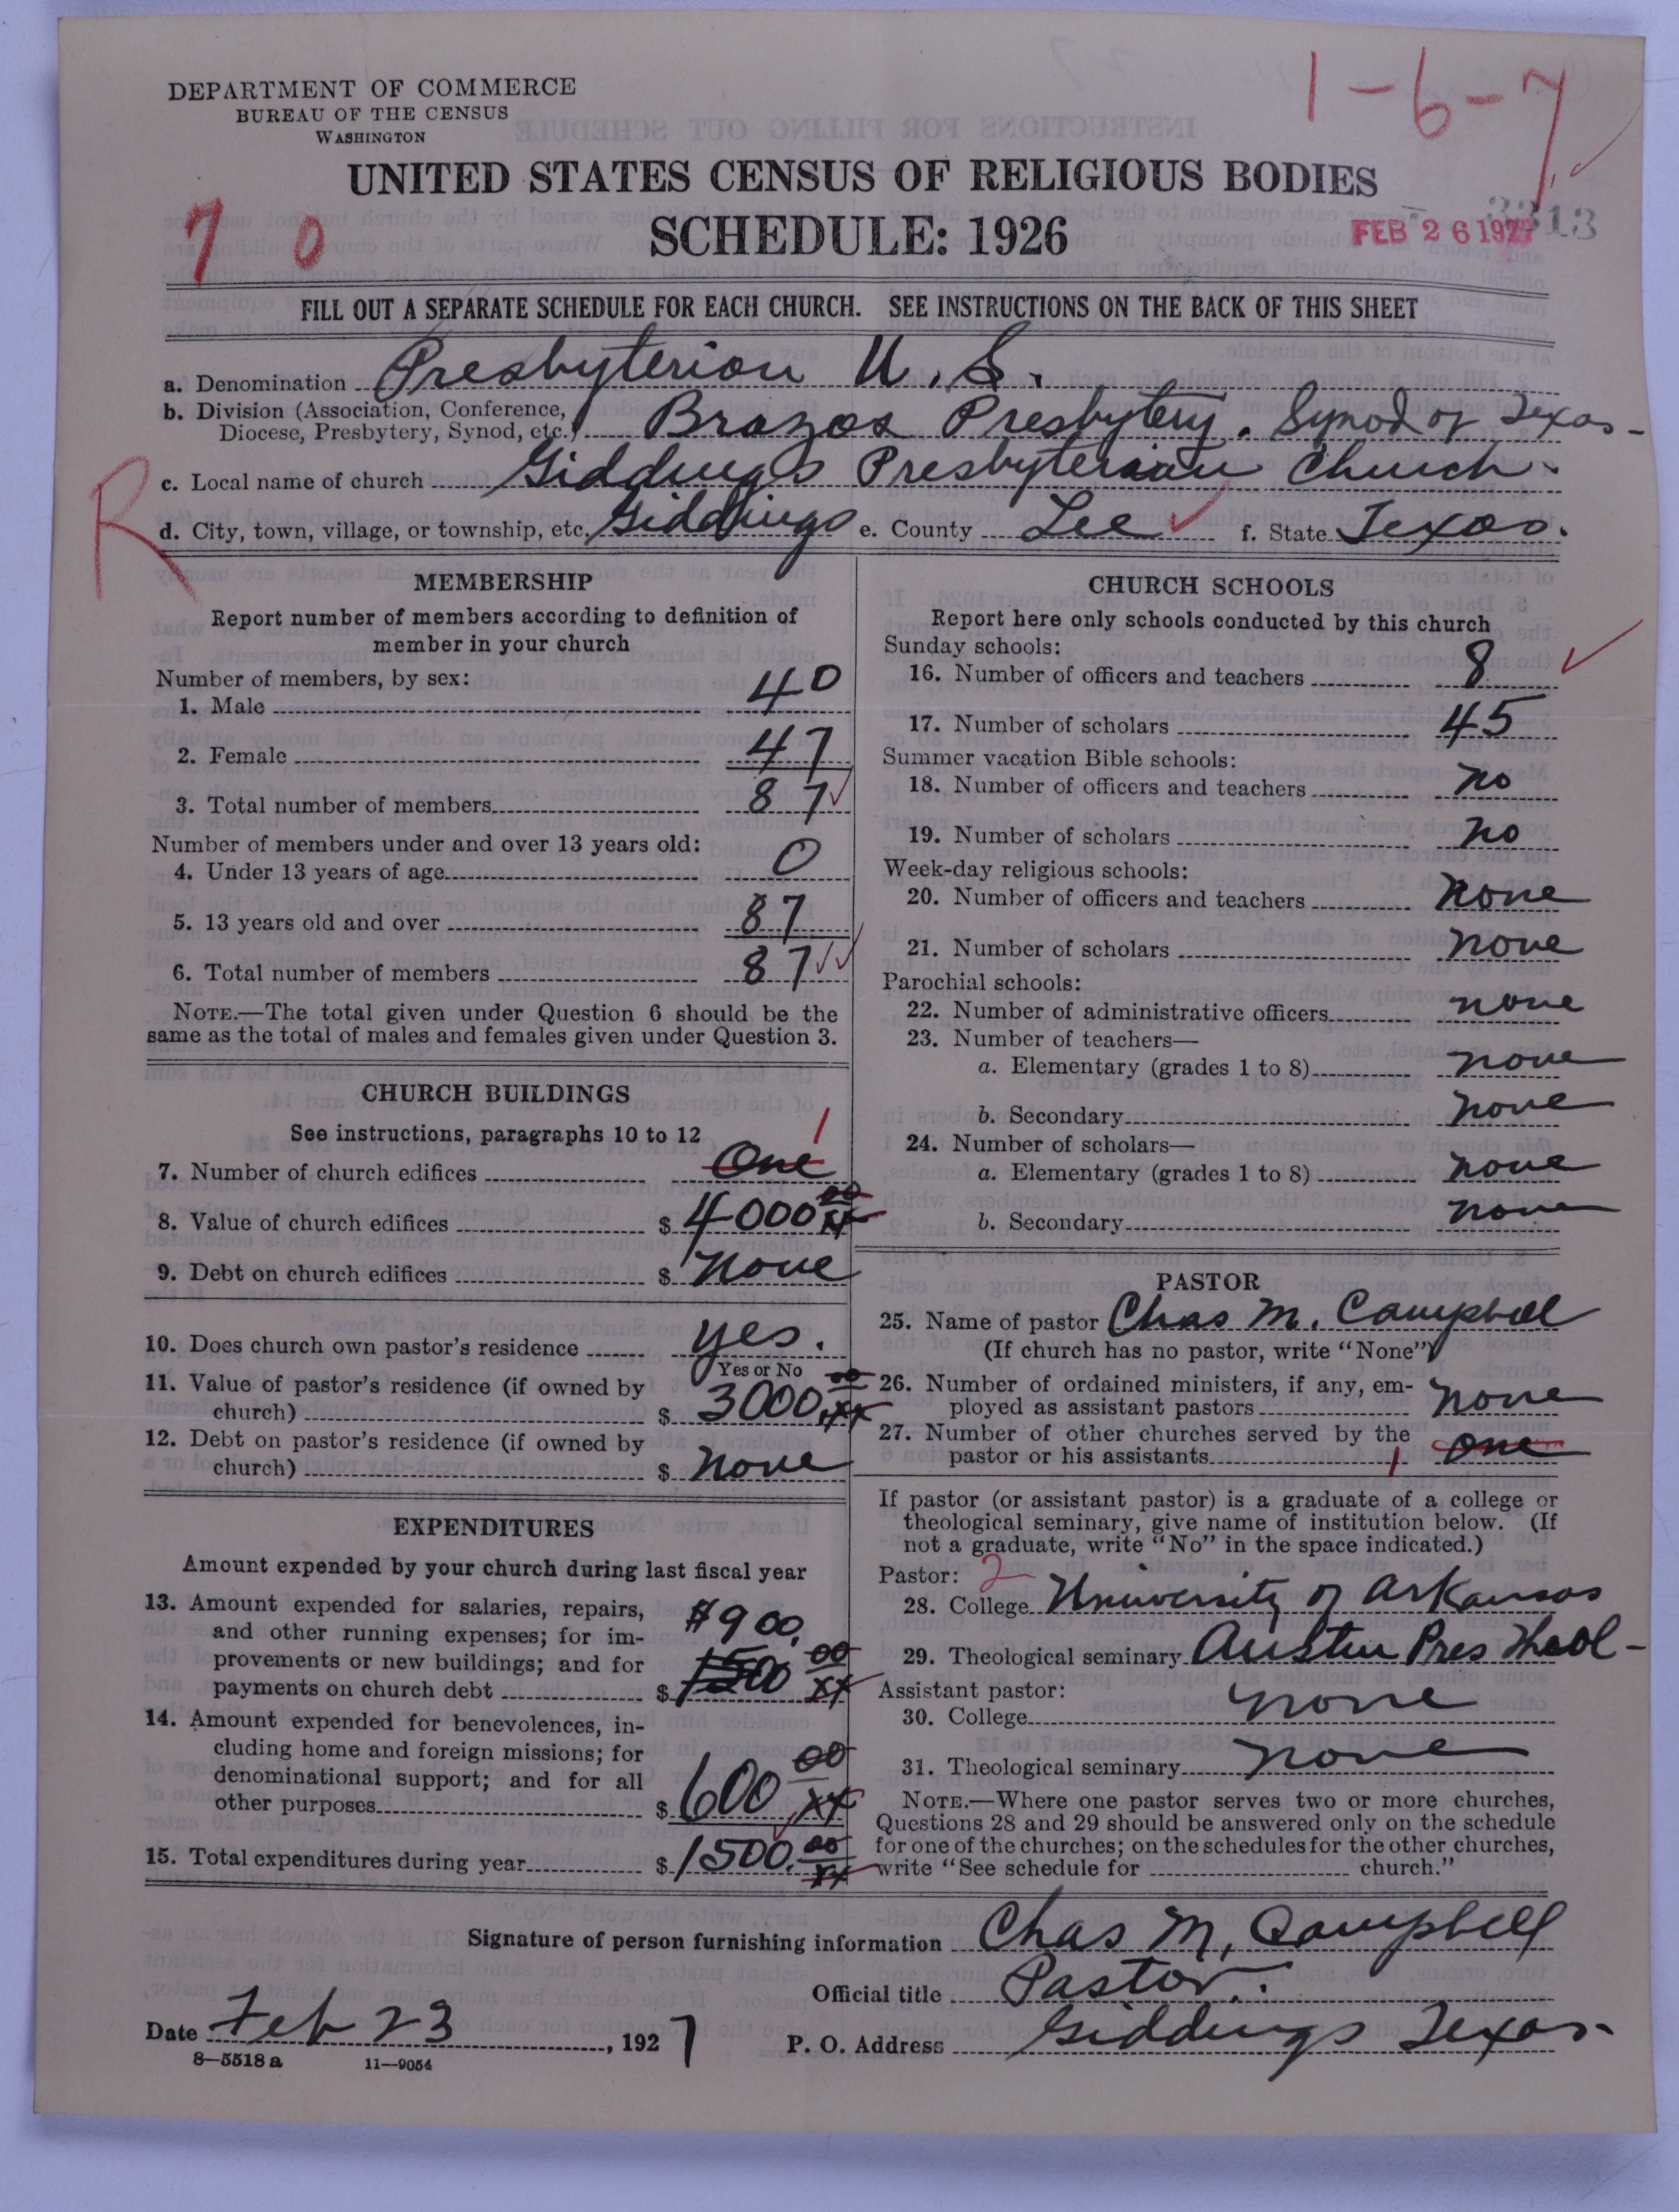 DEPARTMENT OF COMMERCE
BUREAU OF THE CENSUS
WASHINGTON
1-6-7
UNITED STATES CENSUS OF RELIGIOUS BODIES
7 0
SCHEDULE: 1926
FEB 26 1927
FILL OUT A SEPARATE SCHEDULE FOR EACH CHURCH. SEE INSTRUCTIONS ON THE BACK OF THIS SHEET
a. Denomination Presbyterian U.S.
b. Division (Association, Conference, Diocese, Presbytery, Synod, etc.) Brazos Presbytery. Synod of Texas-
c. Local name of church Giddings Presbyterian Church.
R
d. City, town, village, or township, etc. Giddings e. County Lee f. State Texas.
MEMBERSHIP
Report number of members according to definition of
member in your church
Number of members, by sex:
1. Male 40
2. Female 47
3. Total number of members 87
Number of members under and over 13 years old:
4. Under 13 years of age 0
5. 13 years old and over 87
6. Total number of members 87
NOTE.—The total given under Question 6 should be the
same as the total of males and females given under Question 3.
CHURCH BUILDINGS
See instructions, paragraphs 10 to 12
1
7. Number of church edifices One
8. Value of church edifices $ 4000 00/xx
9. Debt on church edifices $ None
10. Does church own pastor's residence yes.
Yes or No
11. Value of pastor's residence (if owned by
church) $ 3000. 00/xx
12. Debt on pastor's residence (if owned by
church) $ None
EXPENDITURES
Amount expended by your church during last fiscal year
13. Amount expended for salaries, repairs,
and other running expenses; for im-
provements or new buildings; and for
payments on church debt $ 1500 00/xx
$900.
14. Amount expended for benevolences, in-
cluding home and foreign missions; for
denominational support; and for all
other purposes $ 600 00/xx
15. Total expenditures during year $ 1500. 00/xx
CHURCH SCHOOLS
Report here only schools conducted by this church
Sunday schools:
16. Number of officers and teachers 8
17. Number of scholars 45
Summer vacation Bible schools:
18. Number of officers and teachers No
19. Number of scholars No
Week-day religious schools:
20. Number of officers and teachers None
21. Number of scholars None
Parochial schools:
22. Number of administrative officers None
23. Number of teachers—
a. Elementary (grades 1 to 8) None
b. Secondary None
24. Number of scholars—
a. Elementary (grades 1 to 8) None
b. Secondary None
PASTOR
25. Name of pastor Chas M. Campbell
(If church has no pastor, write "None")
26. Number of ordained ministers, if any, em-
ployed as assistant pastors None
27. Number of other churches served by the
pastor or his assistants 1 One
If pastor (or assistant pastor) is a graduate of a college or
theological seminary, give name of institution below. (If
not a graduate, write "No" in the space indicated.)
Pastor: 2
28. College University of Arkansas
29. Theological seminary Austin Pres Theol-
Assistant pastor:
30. College None
31. Theological seminary None
NOTE.—Where one pastor serves two or more churches,
Questions 28 and 29 should be answered only on the schedule
for one of the churches; on the schedules for the other churches,
write "See schedule for church."
Signature of person furnishing information Chas M. Campbell
Official title Pastor.
Date Feb 23, 1927 P. O. Address Giddings Texas.
8—5518 a 11—9054